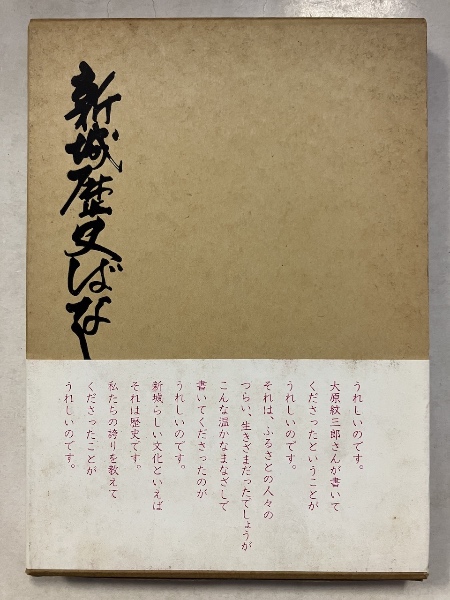 新城歴史ばなし
うれしいのです。
大原紋三郎さんが書いて
くださったということが
うれしいのです。
それは、ふるさとの人々の
つらい、生きざまだったでしょうが
こんな温かなまなざして
書いてくださったのが
うれしいのです。
新城らしい文化といえば
それは歴史です。
私たちの誇りを教えて
くださったことが
うれしいのです。